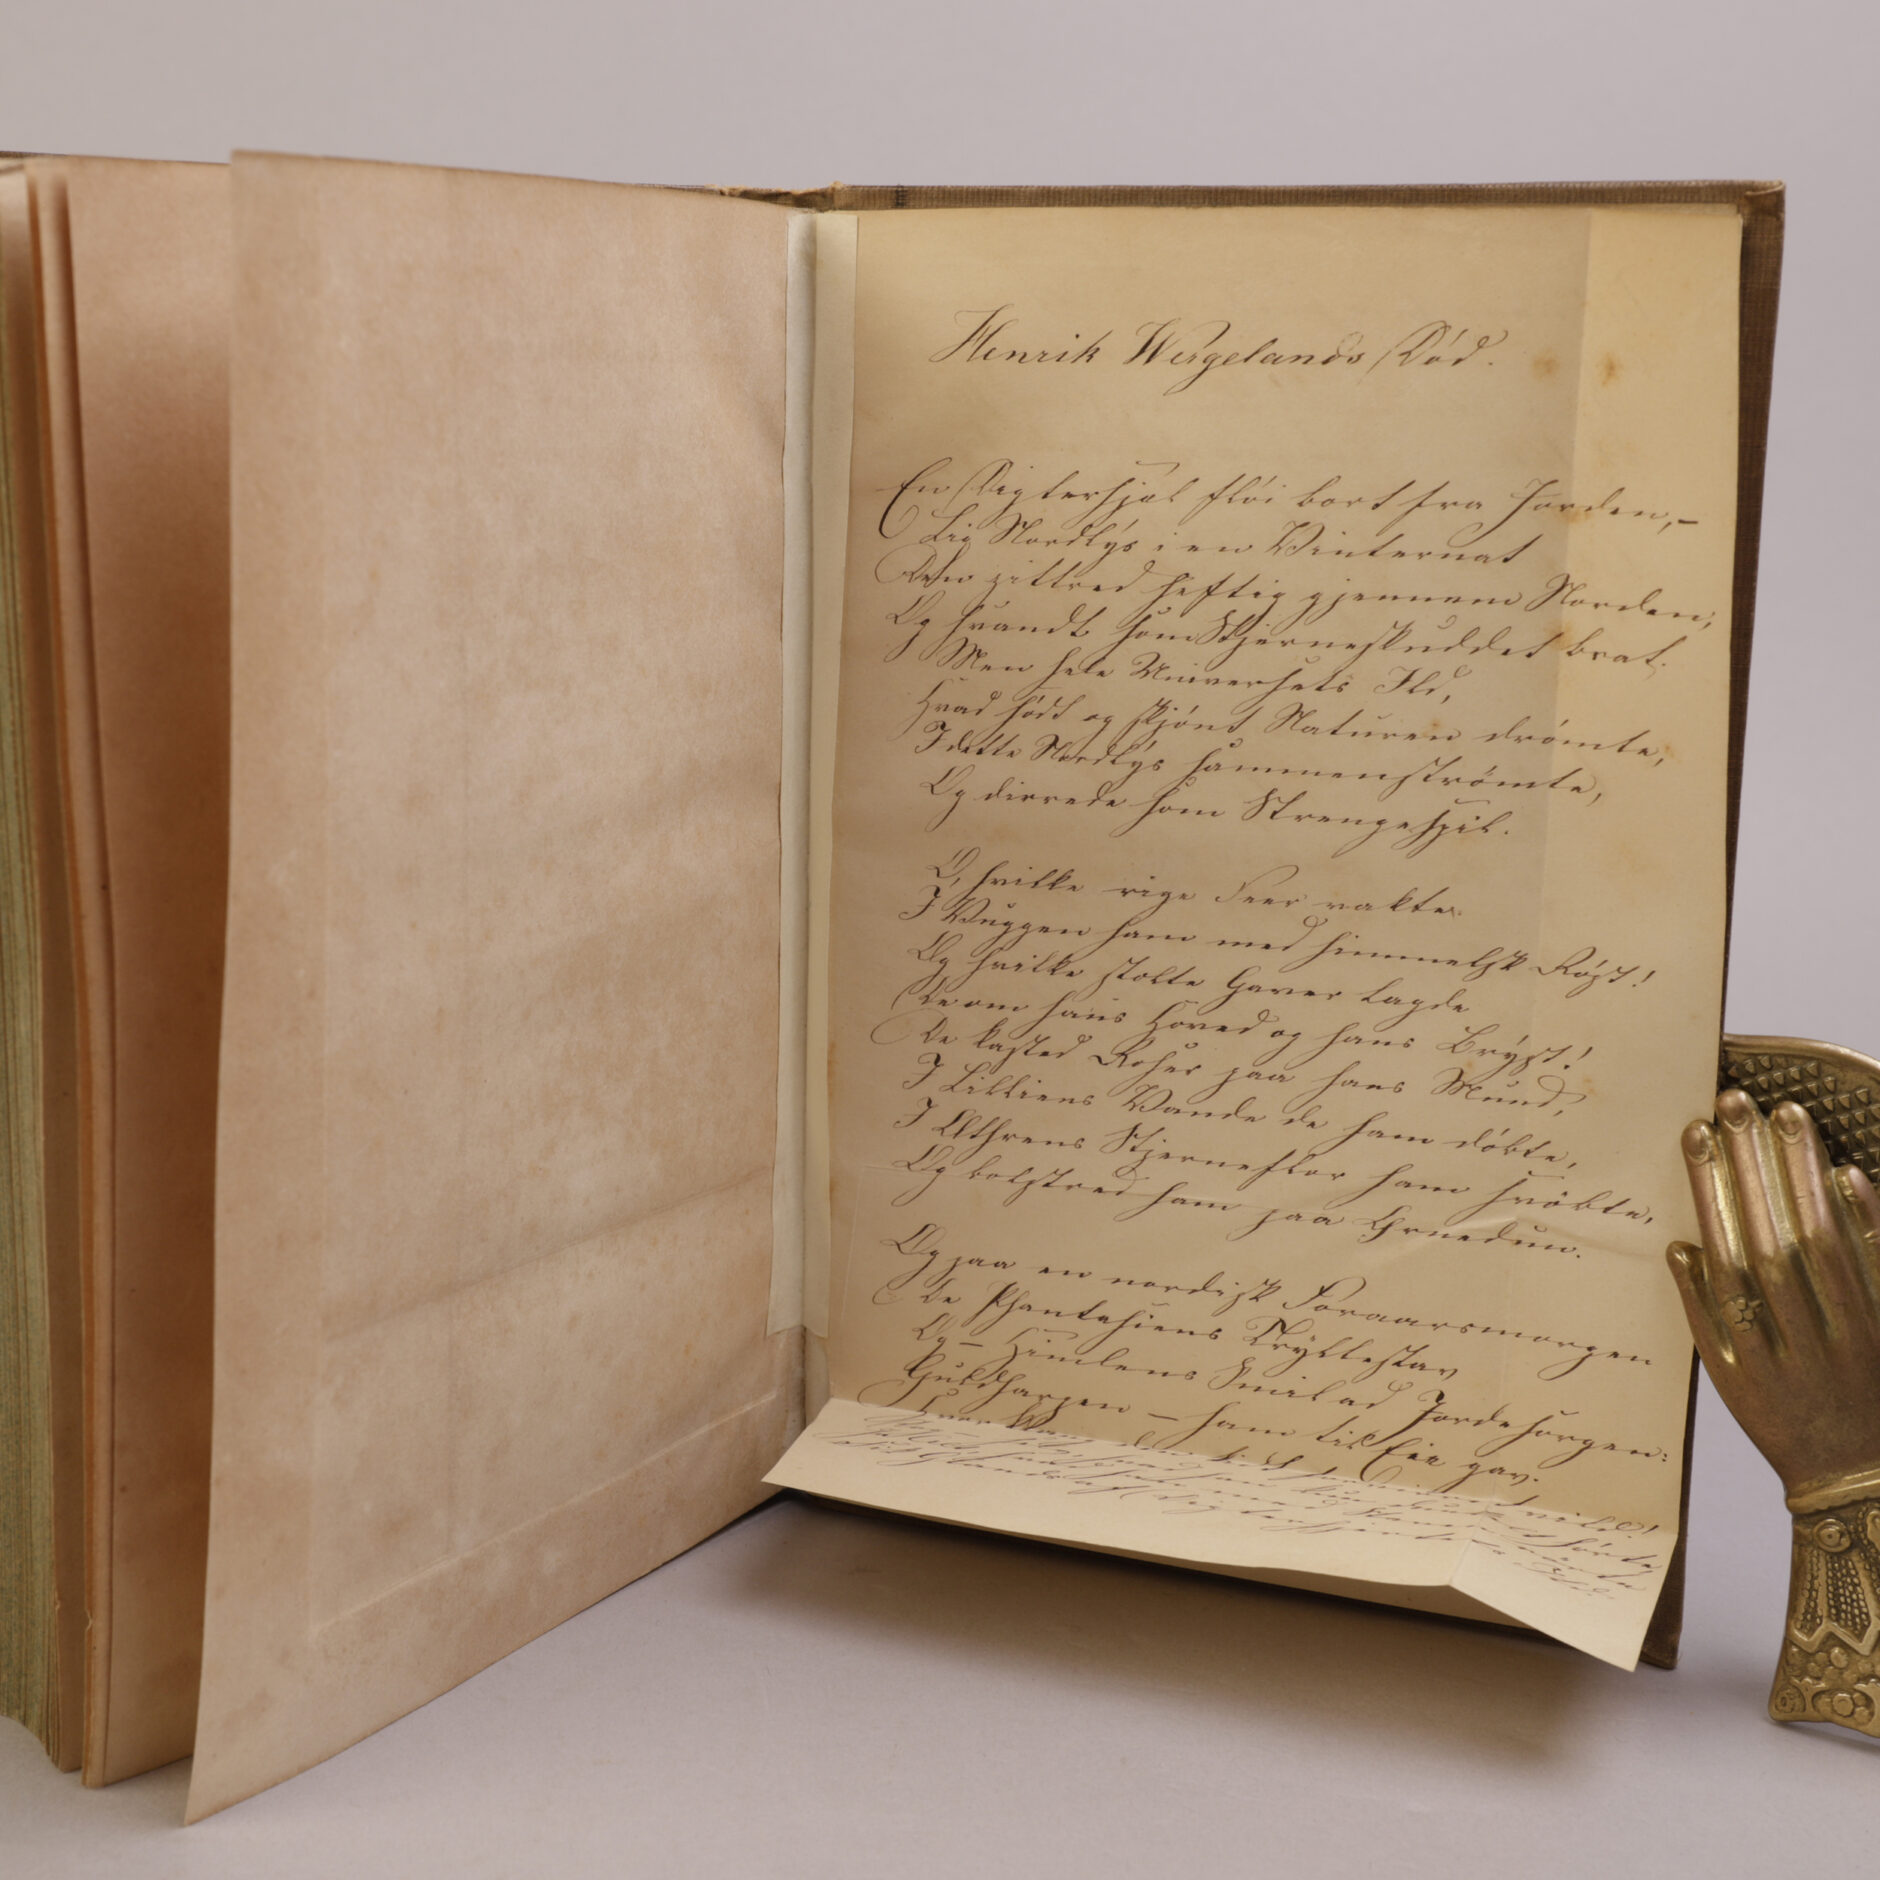 Henrik Wergelands Død.
En Digtersjæl fløi bort fra Jorden, –
Lig Nordlys i en Vinternat
Den zittred heftig gjennem Norden,
Og svandt som Stjerneskuddet brat.
Men hele Universets Ild,
Hvad sødt og skjønt Naturen drømte,
I dette Nordlys sammenstrømte,
Og dirrede som Strengespil.
O, hvilke rige Feer vakte
I Vuggen ham med himmelsk Røst!
Og hvilke stolte Gaver lagde
De om hans Hoved og hans Bryst!
De kasted Roser paa hans Mund,
I Lilliens Vande de ham døbte,
I Æthrens Stjerneflor ham svøbte,
Og bolstred ham paa Ørnedun.
Og paa en nordisk Foraarsmorgen
De Phantasiens Tryllestav
Og – Himlens Smil ad Jordesorgen:
Guldharpen – ham til Eie gav.